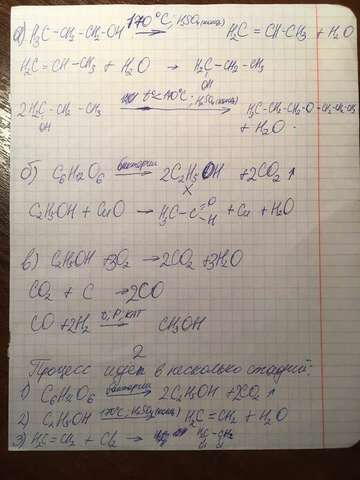 а) H₃C-CH₂-CH₂-OH 170°C; H₂SO₄(конц) → H₂C=CH-CH₃ + H₂O
H₂C=CH-CH₃ + H₂O → H₂C-CH₂-CH₃
OH
2H₂C-CH₂-CH₃ t°<140°C; H₂SO₄(конц) → H₃C-CH₂-CH₂-O-CH₂-CH₂-CH₃
OH + H₂O.
б) C₆H₁₂O₆ бактерии → 2C₂H₅OH + 2CO₂↑
X
C₂H₅OH + CuO → H₃C-C=O H + Cu + H₂O
в) C₂H₅OH + 3O₂ → 2CO₂ + 3H₂O
CO₂ + C → 2CO
CO + 2H₂ t, P, кат → CH₃OH
2
Процесс идет в несколько стадий:
1) C₆H₁₂O₆ бактерии → 2C₂H₅OH + 2CO₂↑
2) C₂H₅OH 170°C, H₂SO₄(конц) → H₂C=CH₂ + H₂O
3) H₂C=CH₂ + Cl₂ → H₂C-CH₂
Cl Cl